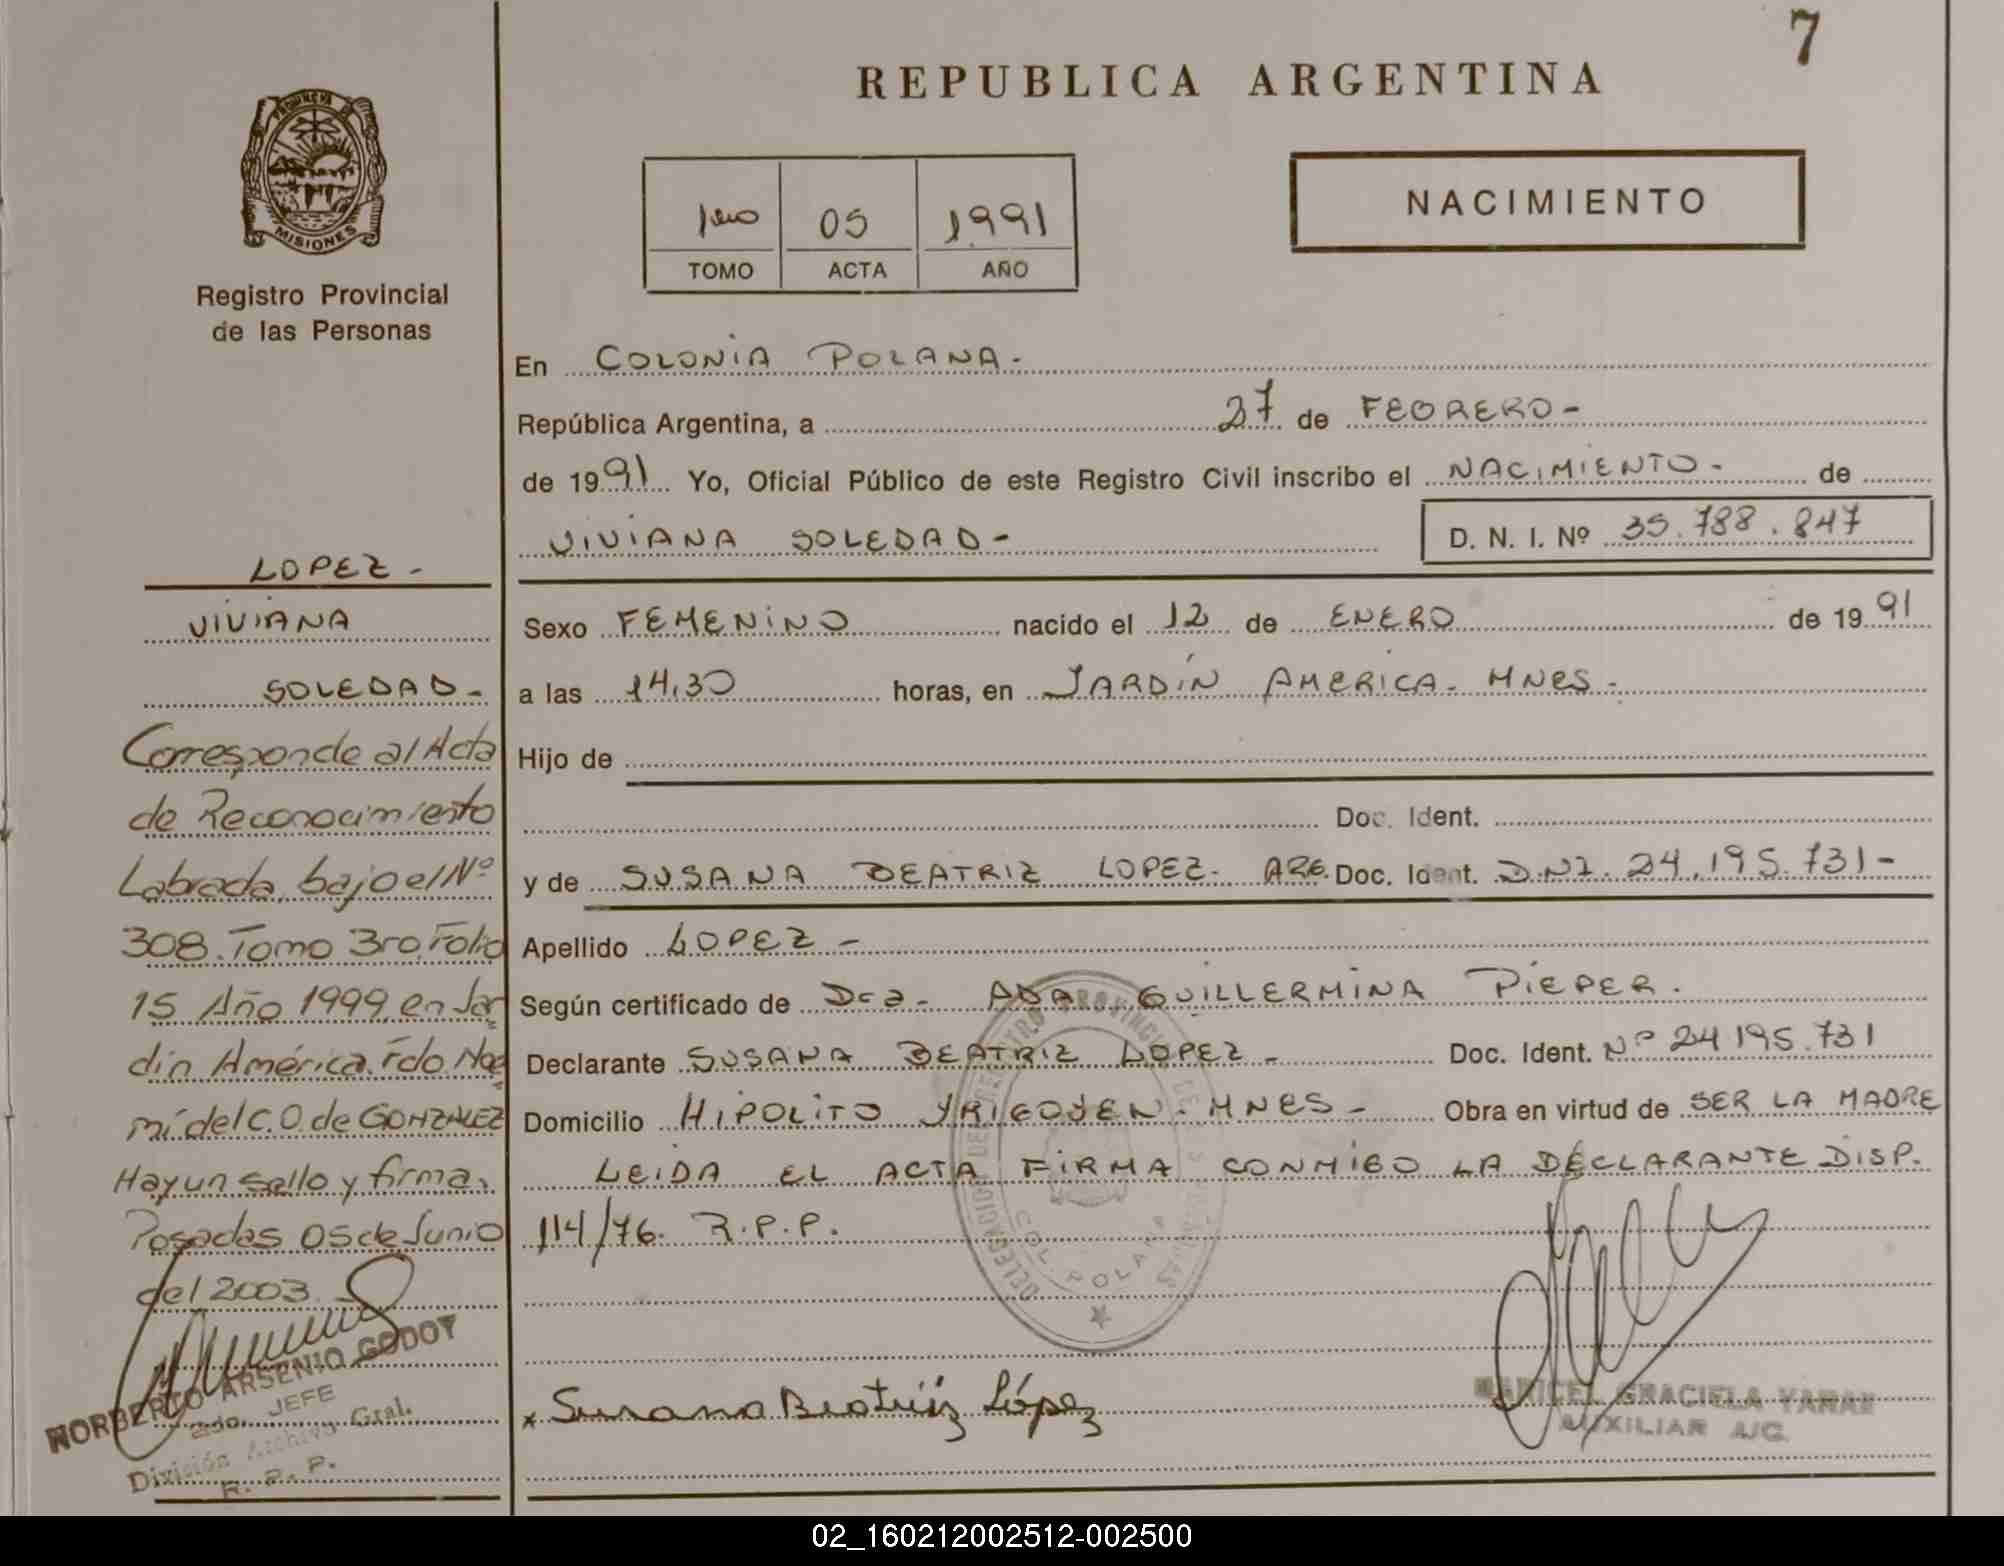 7
REPUBLICA ARGENTINA
PROVINCIA DE
MISIONES
Registro Provincial
de las Personas
1ero 05 1991
TOMO ACTA AÑO
NACIMIENTO
En COLONIA POLANA.-
República Argentina, a 27 de FEBRERO-
de 1991 Yo, Oficial Público de este Registro Civil inscribo el NACIMIENTO- de
VIVIANA SOLEDAD-
D. N. I. Nº 35.788.847
Sexo FEMENINO nacido el 12 de ENERO de 1991
a las 14,30 horas, en JARDIN AMERICA. MNES.
Hijo de
Doc. Ident.
y de SUSANA BEATRIZ LOPEZ. ARG. Doc. Ident. D.N.I. 24.195.731-
Apellido LOPEZ-
Según certificado de Dra. ADA GUILLERMINA PIEPER.
Declarante SUSANA BEATRIZ LOPEZ- Doc. Ident. Nº 24195.731
Domicilio HIPOLITO YRIGOYEN. MNES- Obra en virtud de SER LA MADRE
LEIDA EL ACTA FIRMA CONMIGO LA DECLARANTE DISP.
114/76. R.P.P.
Susana Beatriz López
MARICEL GRACIELA
AUXILIAR A/C.
DELEGACION DEL REGISTRO PROVINCIAL DE LAS PERSONAS
COL. POLANA
LOPEZ-
VIVIANA
SOLEDAD-
Corresponde al Acta
de Reconocimiento
Labrada, bajo el Nº
308. Tomo 3ro. Folio
15 Año 1999, en Jar
din América. Fdo Noe
mí del C.O. de GONZALEZ
Hay un sello y firma.
Posadas 05 de Junio
del 2003.
NORBERTO ARSENIO GODOY
2do. JEFE
División Archivo Gral.
R. P. P.
02_160212002512-002500